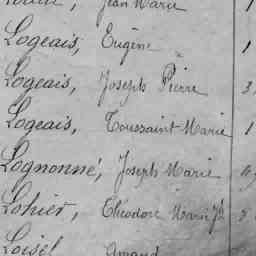 Jean Marie
Logeais, Eugène 1
Logeais, Joseph Pierre 3
Logeais, Toussaint Marie 1
Lognonné, Joseph Marie
Lohier, Théodore Marie Jh
Loisel Amand